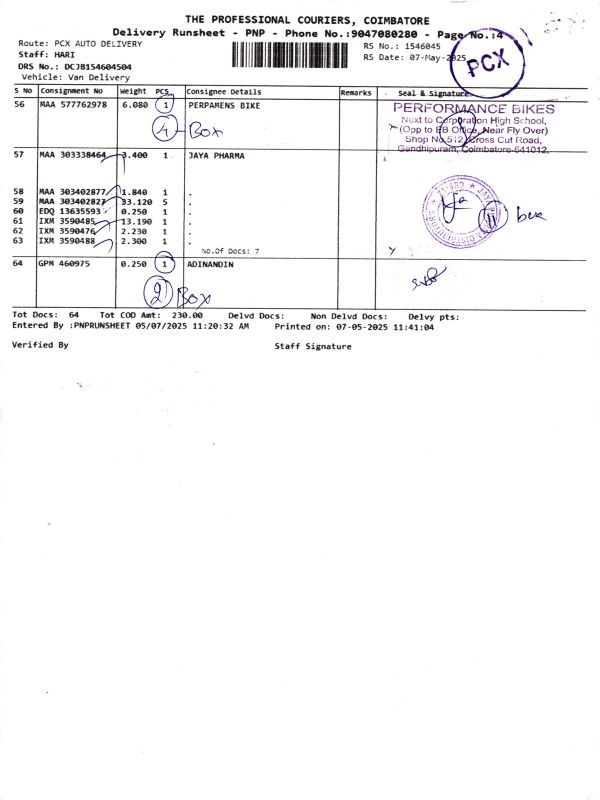 THE PROFESSIONAL COURIERS, COIMBATORE
Delivery Runsheet - PNP - Phone No.:9047080280 - Page No.:4
Route: PCX AUTO DELIVERY
RS No.: 1546045
Staff: HARI
RS Date: 07-May-2025
DRS No.: DCJB154604504
Vehicle: Van Delivery
PCX
S No Consignment No Weight PCS Consignee Details Remarks Seal & Signature
56 MAA 577762978 6.080 1 PERPAMENS BIKE
4 - Box
PERFORMANCE BIKES
Next to Corporation High School,
(Opp to EB Office, Near Fly Over)
Shop No.512, Cross Cut Road,
Gandhipuram, Coimbatore-641012.
57 MAA 303338464 3.400 1 JAYA PHARMA
58 MAA 303402877 1.840 1 .
59 MAA 303402827 33.120 5 .
60 EDQ 13635593 0.250 1 .
61 IXM 3590485 13.190 1 .
62 IXM 3590476 2.230 1 .
63 IXM 3590488 2.300 1 .
No.Of Docs: 7
11 box
64 GPM 460975 0.250 1 ADINANDIN
2 Box
Tot Docs: 64 Tot COD Amt: 230.00 Delvd Docs: Non Delvd Docs: Delvy pts:
Entered By :PNPRUNSHEET 05/07/2025 11:20:32 AM Printed on: 07-05-2025 11:41:04
Verified By Staff Signature